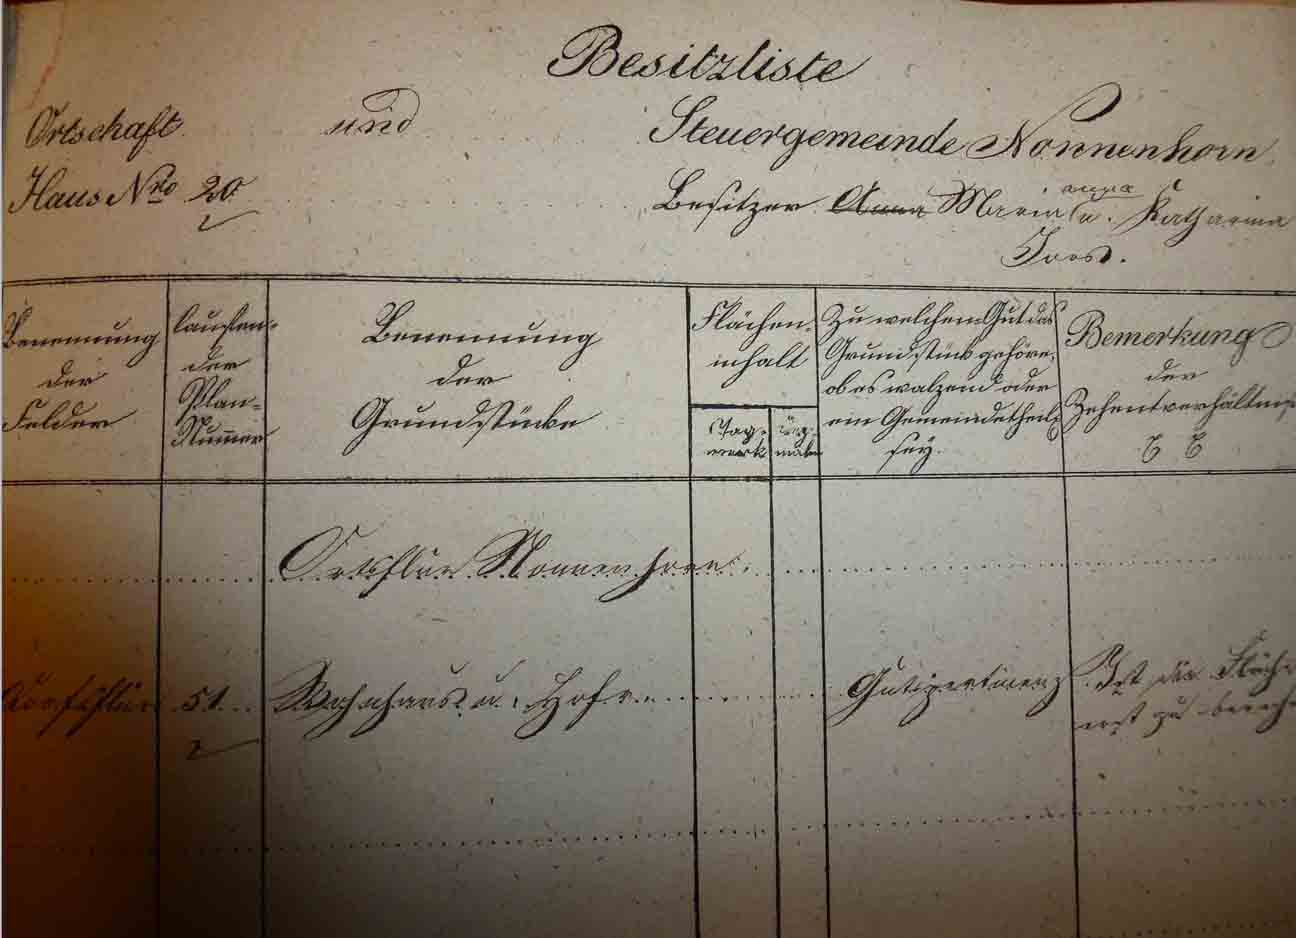 Besitzliste
Ortschaft und Steuergemeinde Nonnenhorn
Haus Nro 20 Besitzer Anna Maria Anna u. Katharina
Joos.
Benennung der Felder
laufende der Plan- Nummer
Benennung der Grundstücke
Flächen- inhalt
Tag- werk
Dezi- malen
Zu welchem Gut das
Grundstück gehöre,
ob es walzend oder
ein Gemeindetheil
sey.
Bemerkung
der
Zehentverhältniße
Ortsflur Nonnenhorn.
Dorfsflur 51. Wohnhaus u. Hofr. Gutspertinenz Ist die Fläche
erst zu